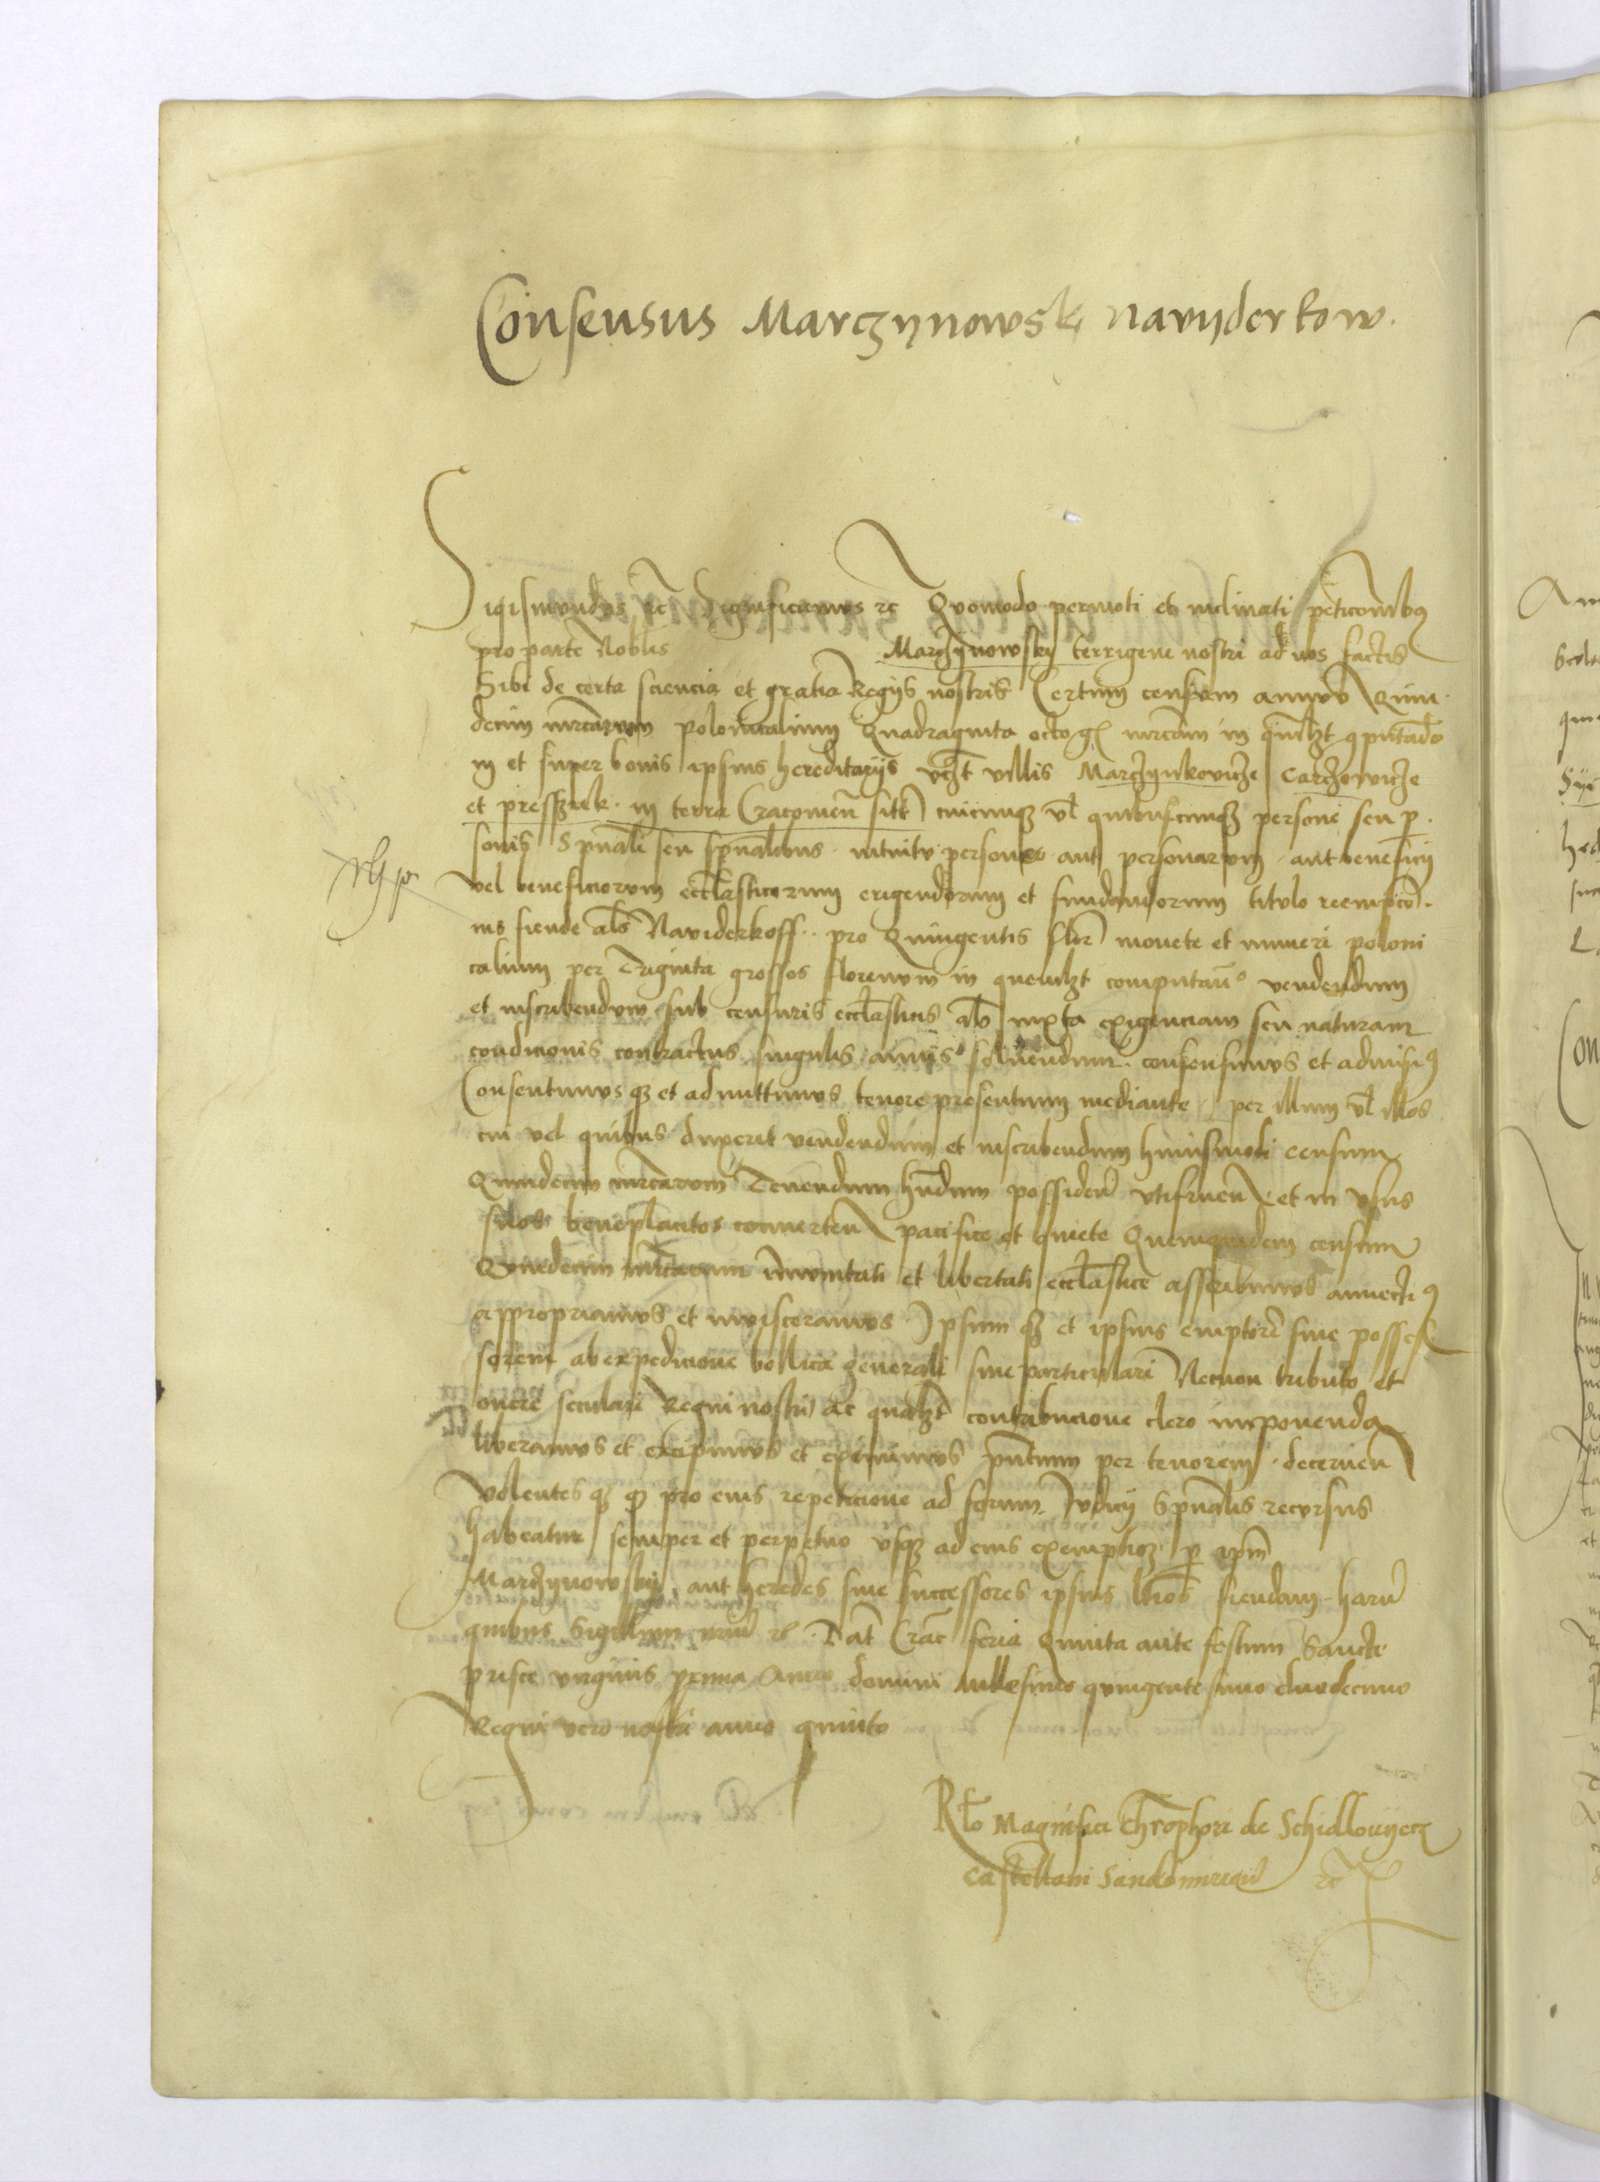 Consensus Marczynowski navyderkow.
Sigismundus etc Significamus etc Quomodo permoti et inclinati peticionibus
pro parte Nobilis Marczynowsky terrigene nostri ad nos factis
Sibi de certa sciencia et gratia Regiis nostris Certum censum annuum Quin-
decim mrcarum polonicalium Quadraginta octo gr mrcam in qmlzt computando
in et super bonis ipsius hereditariis vczt villis Marczynkovicze Carzowicze
et pressek in terra Cracovien sitt cuicunque vl quibuscunque persone seu per-
sonis Spuali seu spualibus intuitu persone aut personarum aut beneficii
vel beneficiorum eccliasticorum erigendorum et fundandorum titulo reempcio-
nis fiende als Naviderkoff pro Quingentis flor monete et numeri poloni
calium per Triginta grossos florenum in quemlzt computan vendendum
et inscribendum sub censuris eccliasticis ab iuxta exigenciam seu naturam
condicionis contractus singulis annis solvendum consensimus et admisimus
Consentimusque et admittimus tenore presentium mediante per illum vl illos
cui vel quibus duxerit vendendum et inscribendum huiusmodi censum
Quindecim mrcarum Tenendum hndum possiden utifruen et in usus
suos beneplacitos converten pacifice et quiete Quemquidem censum
Quindecim mrcarum imunitati et libertati eccliastice asscribimus annectimus
appropriamus et invisceramus Ipsumque et ipsius emptorem sive posses
sorem ab expedicione bellica generali sive particulari Necnon tributo et
onere seculari Regni nostri ac qualzt contribucione clero imponenda
liberamus et excipimus et eximimus pntium per tenorem decernen
Volentes que quod pro eius repeticione ad forum Iudicii Spualis recursus
habeatur semper et perpetuo usque ad eius exemptioem per ipm
Marczynowsky aut heredes sive successores ipsius ltios fiendam harum
quibus Sigillum nrm etc Dat Crac feria Quinta ante festum Sancte
prisce virginis proxima Anno domini millesimo quingentesimo duodecimo
Regni vero nostri anno quinto
Rlo Magnifici Chrophori de Schidlovyecz
Castellani Sandomirien etc